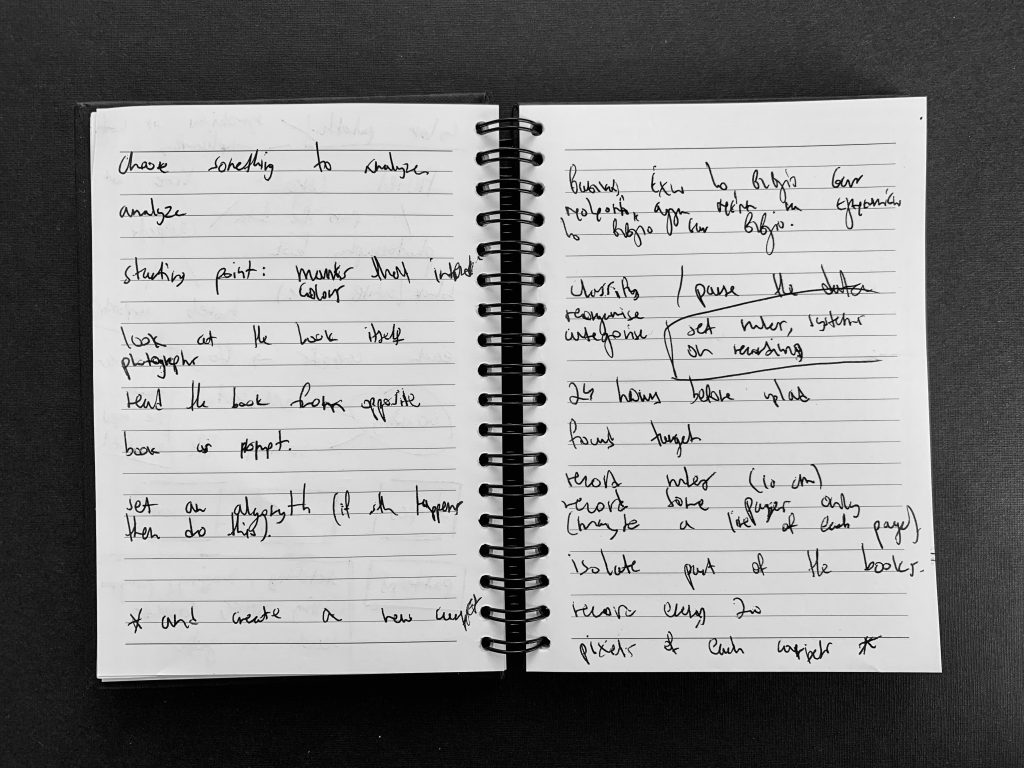 choose something to analyze
analyze
starting point: marker that
colour
look at the book itself
photographs
read the book from opposite
book as prompt.
set an algorythm (if sth happens
then do this).
* and create a new
έχω το βιβλίο σαν
το βιβλίο σαν βιβλίο.
classify / parse the data
reorganise
categorise
set rules, systems
on reading
24 hours before upload
found target
record rules (10 cm)
record some pages only
(maybe a line of each page).
isolate part of the books.
record every 20
pixels of each *